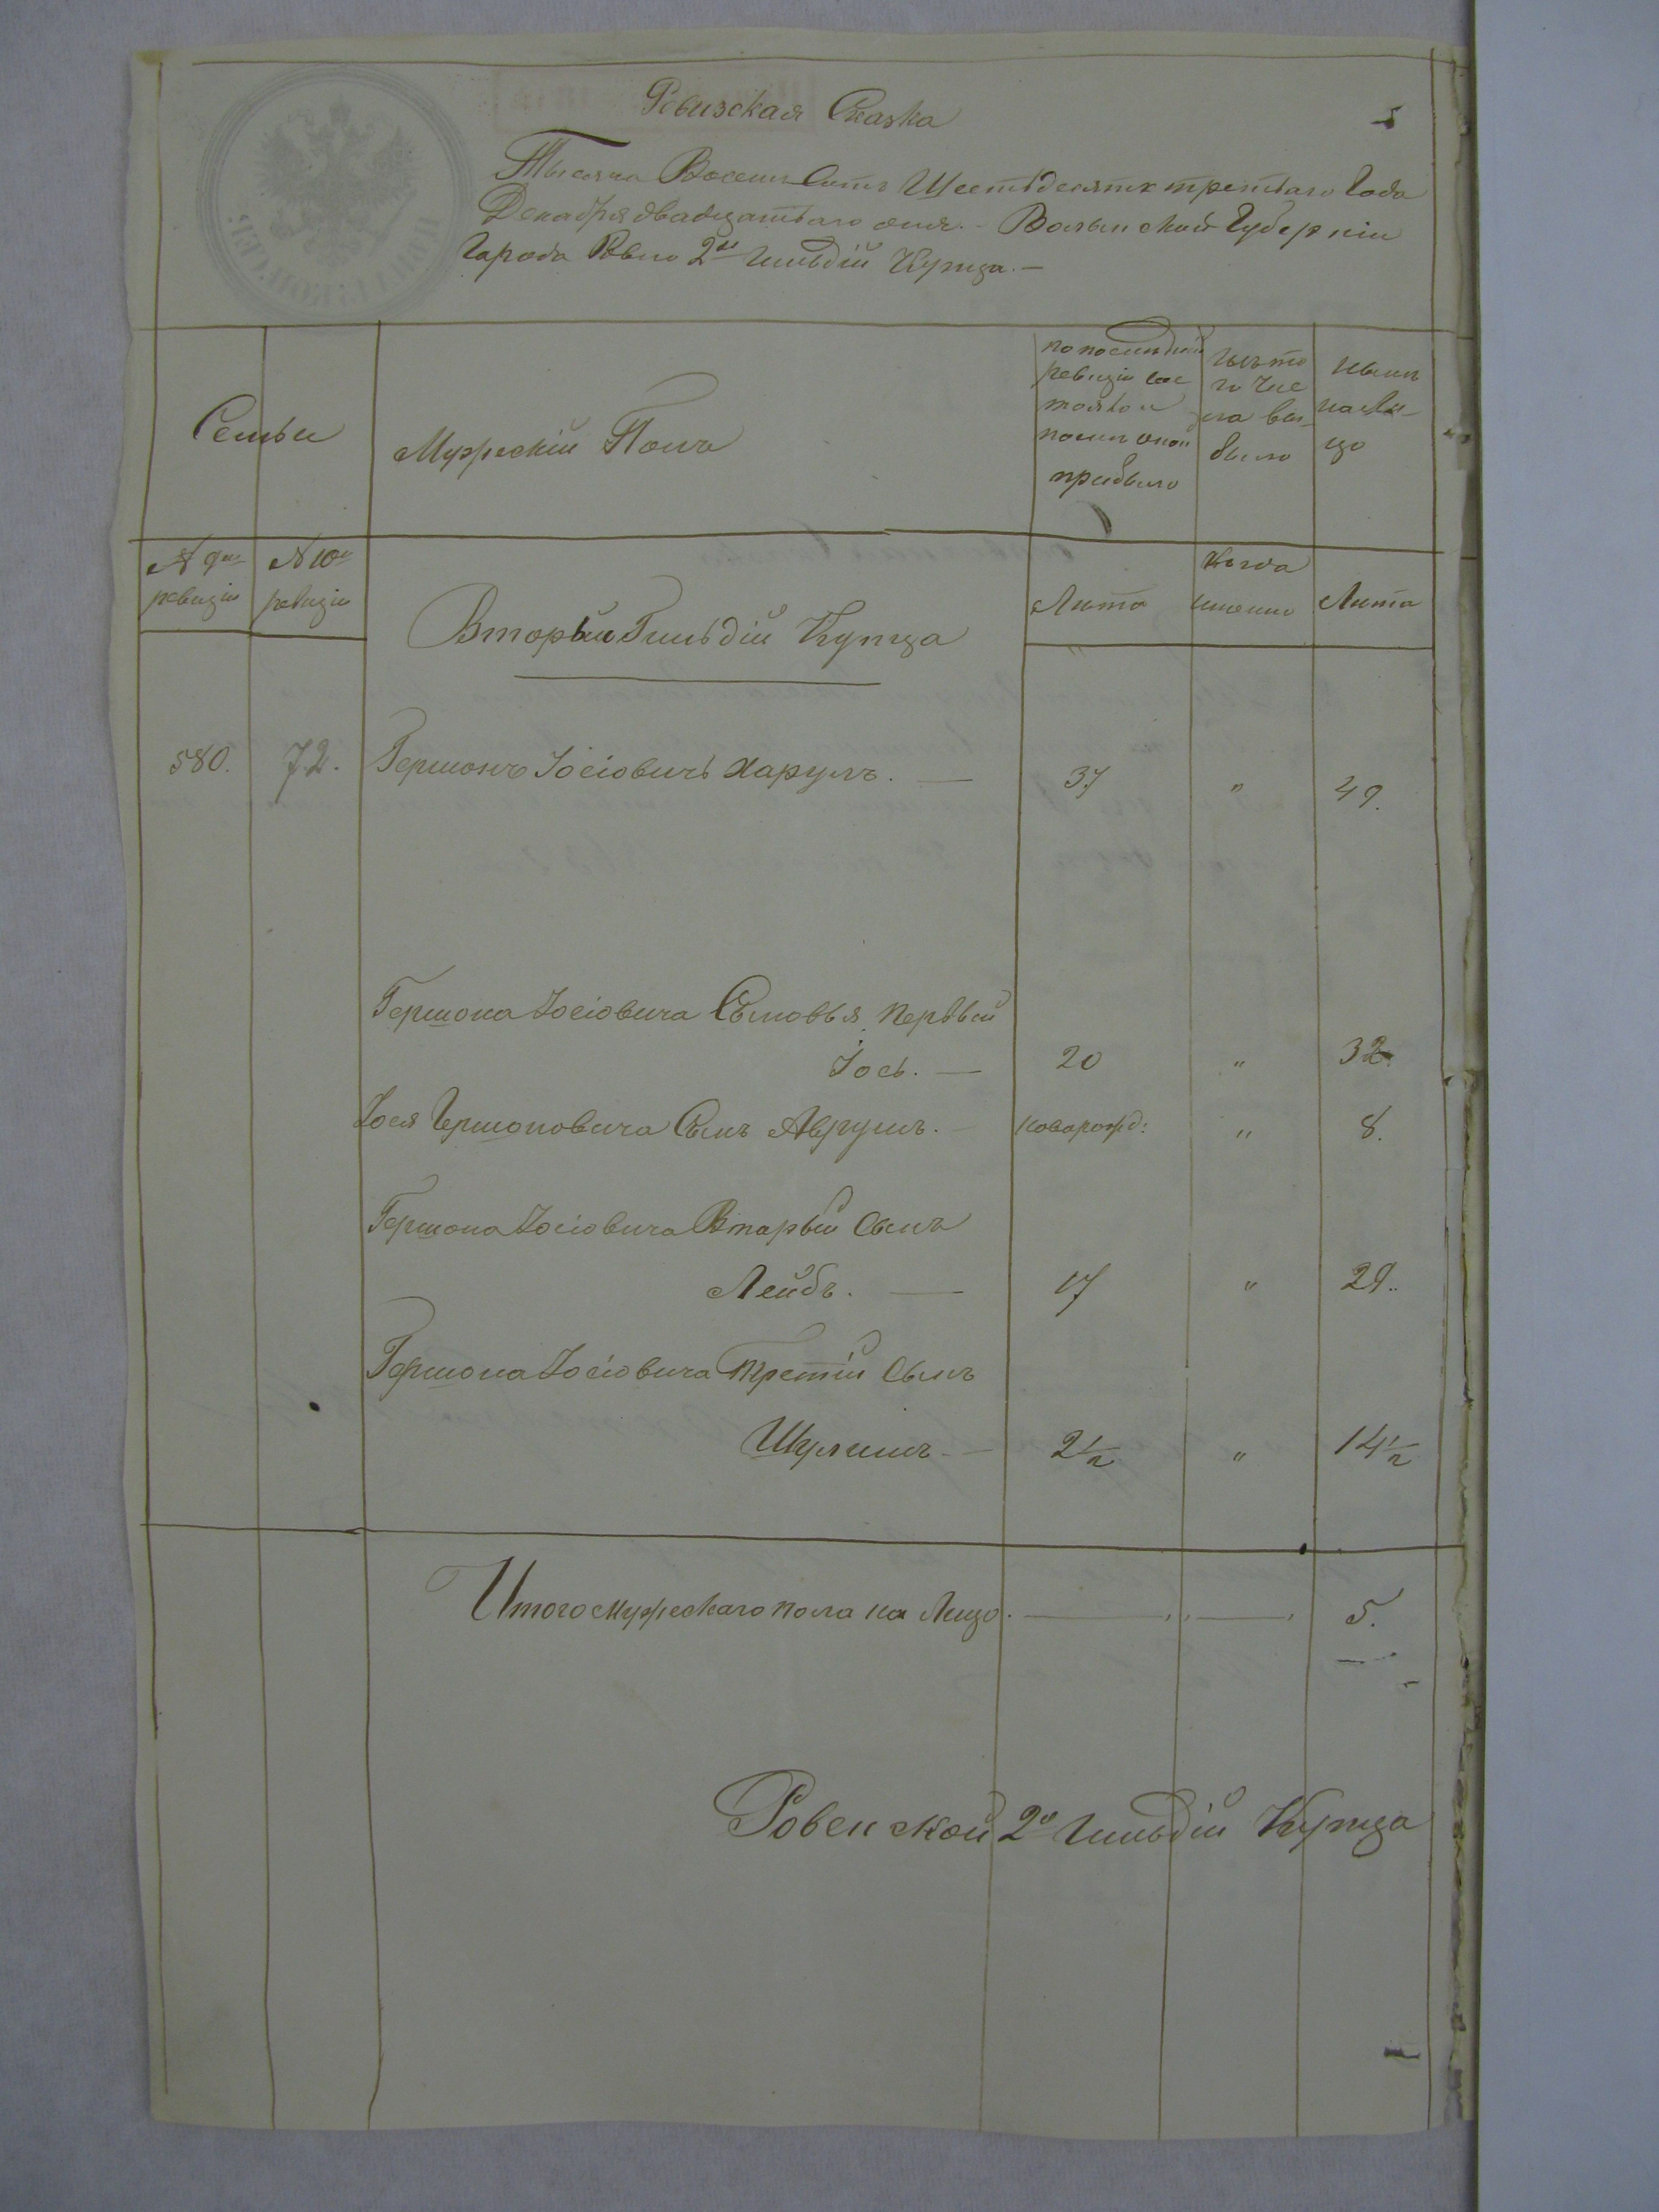 Ревизская Сказка
5
Тысяча Восемь Сотъ Шестьдесятъ третьяго Года
Декабря двадцатаго дня. - Волынской Губерніи
Города Ровно 2й Гильдіи Купца. -
Семьи
Мужескій Полъ
по последней
ревизіи сос
тояло и
после оной
прибыло
изъ то
го чис
ла вы
было
ныне
на ли-
цо
№ 9й
ревизіи
№ 10й
ревизіи
Вторый Гильдіи Купца
Лета
Когда
именно
Лета
580. 72. Гершонъ Іосіовичъ Харулъ. — 37 " 49.
Гершона Іосіовича Сыновья Первый
Іось. — 20 " 32.
Іося Гершоновича Сынъ Аврумъ. — новорожд: " 8.
Гершона Іосіовича Вторый Сынъ
Лейбъ. — 17 " 29.
Гершона Іосіовича Третій Сынъ
Шулимъ — 2½ " 14½
Итого мужескаго пола на Лицо. — 5.
Ровенской 2й Гильдіи Купца